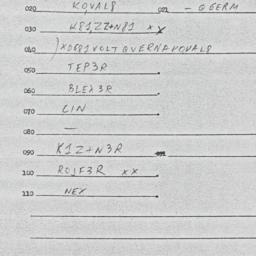 020 KOVAL8 021 - GGERM
030 K81ZZ+N81 XX
040 XDE81VOLT QVERNAKOVAL8
050 TEP3R
060 BLEX3R
070 LIN
080 —
090 K1Z+N3R
100 ROJF3R XX
110 NEX